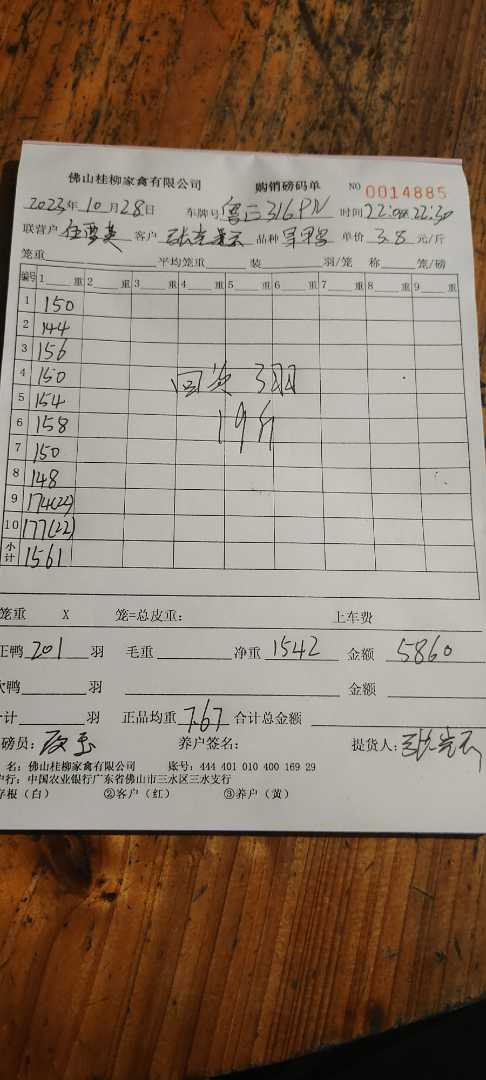 佛山桂柳家禽有限公司 购销磅码单 NO 0014885
2023年10月28日 车牌号 316PN 时间 22:30
联营户 客户 品种 单价 3.8 元/斤
笼重 平均笼重 装 羽/笼 称 笼/磅
编号 1 重 2 重 3 重 4 重 5 重 6 重 7 重 8 重 9 重
1 150
2 144
3 156
4 150 回 3羽
5 154
6 158 19斤
7 150
8 148
9 174(22)
10 177(22)
小计 1561
笼重 X 笼=总皮重: 上车费
正鸭 201 羽 毛重 净重 1542 金额 5860
次鸭 羽 金额
计 羽 正品均重 7.67 合计总金额
磅员: 养户签名: 提货人:
名: 佛山桂柳家禽有限公司 账号: 444 401 010 400 169 29
户行: 中国农业银行广东省佛山市三水区三水支行
存根(白) ②客户(红) ③养户(黄)